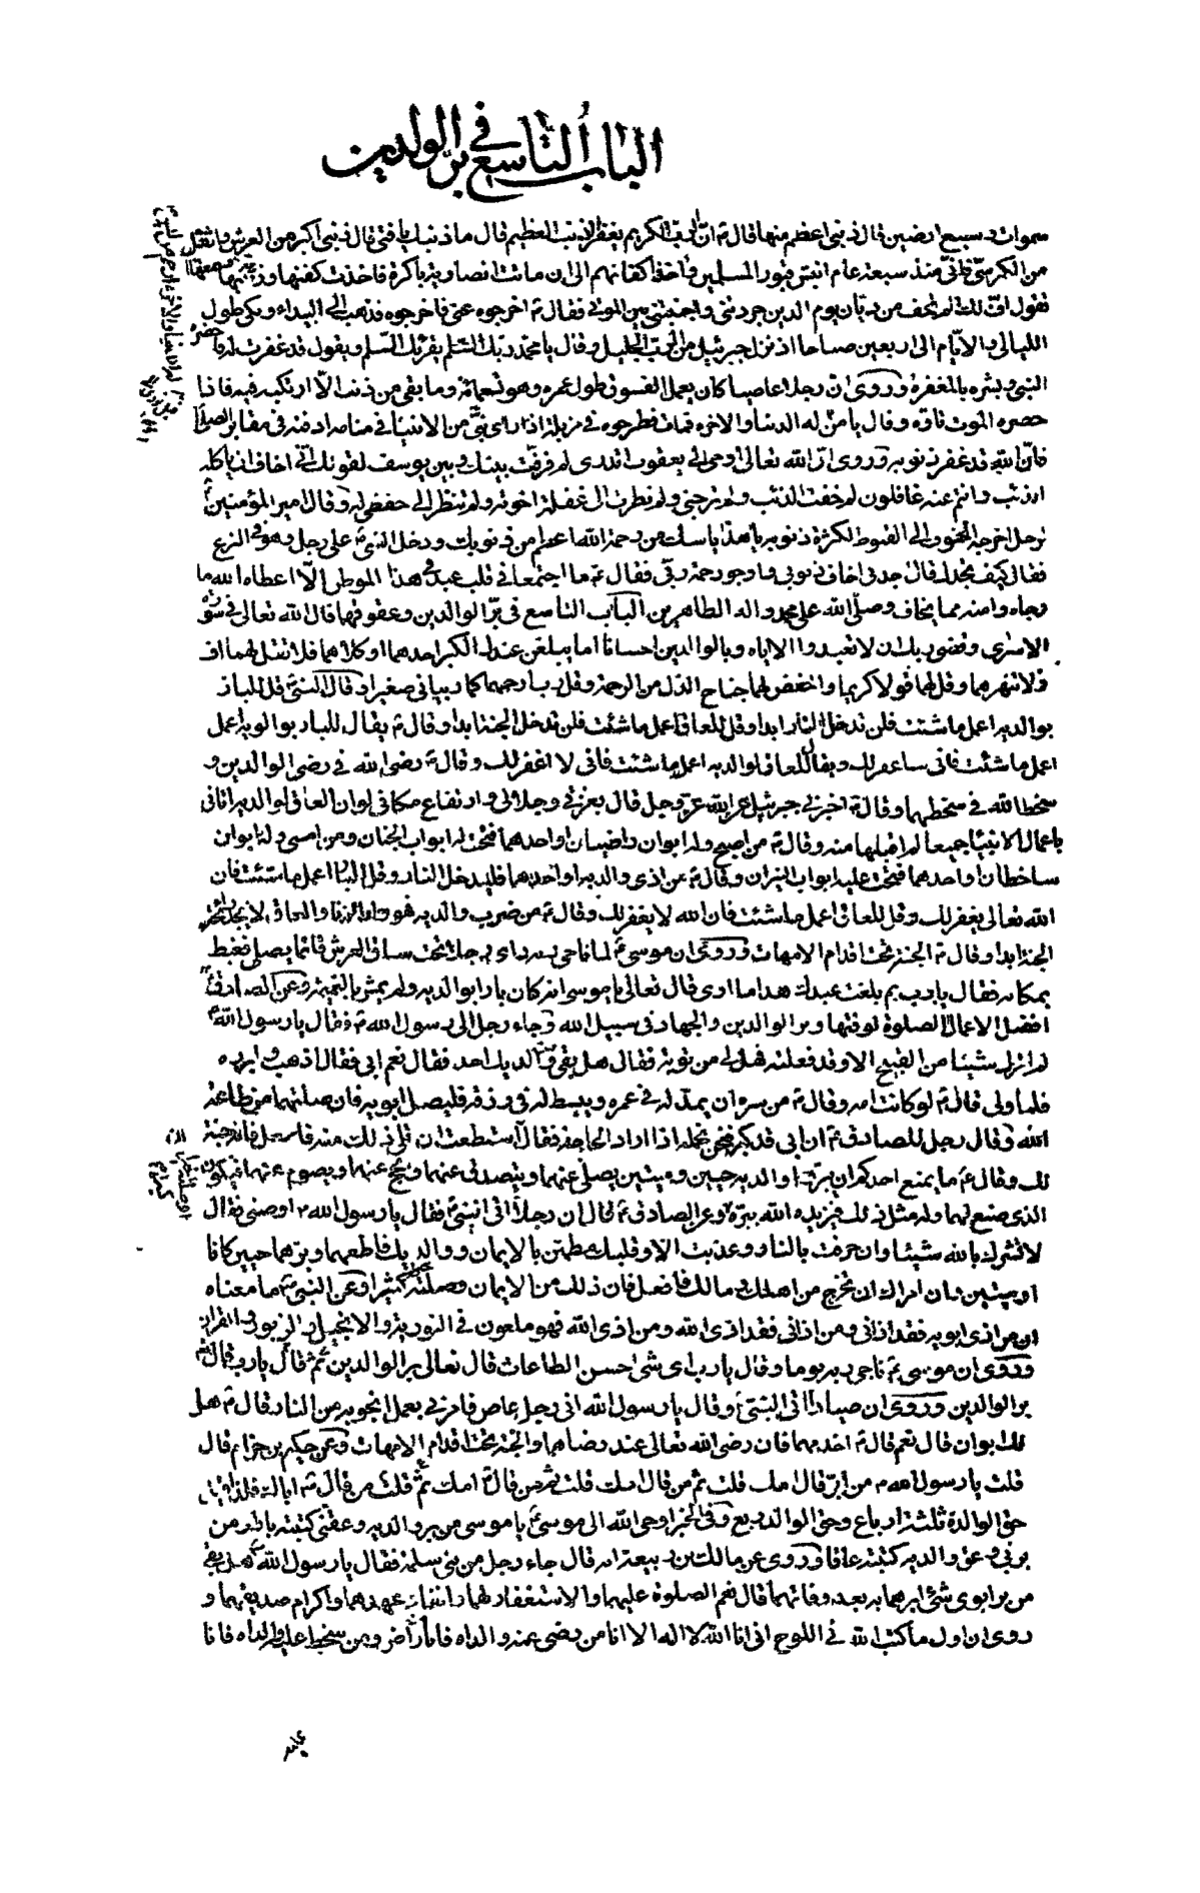 الباب التاسع في بر الوالدين
سموات وسبع ارضين قال ذنبي اعظم منها قال ع ان الرب الكريم يغفر الذنب العظيم قال ما ذنبك يا فتى قال ذنبي اكبر من العرش واثقل
من الكرسي فاني منذ سبعة عام انبش قبور المسلمين واخذ اكفانهم الى ان ماتت انصارية باكرة فاخذت كفنها
فقول اف لك الم تخف من ديان يوم الدين جردتني واجنبتني بين الموتى فقال ع اخرجوه عني فاخرجوه فذهب الى البيداء وبكى طول
الليالي والايام الى اربعين صباحا اذ نزل جبرئيل من الرب الجليل وقال يا محمد ربك السلم يقرئك السلم ويقول قد غفرت له فاحضره
النبي وبشره بالمغفرة وروى ان رجلا عاصيا كان يعمل الفسوق طول عمره وما بقى من ذنب الا ارتكبه فيه فاذا
حضره الموت تاوه وقال يا من له الدنيا والاخره فمات فطرحوه في مزبلة اذا راى نبي من الانبيا في منامه ادفنه في مقابر الصلحا
فان الله قد غفر ذنوبه وروى ان الله تعالى اوحى الى يعقوب اتدرى لم فرقت بينك وبين يوسف لقولك اني اخاف ان ياكله
الذئب وانتم عنه غافلون لم خفت الذئب ولم ترجني ولم نظرت الى غفلة اخوته ولم تنظر الى حفظى له وقال امير المؤمنين ع
لرجل اخرجه الخوف الى القنوط لكثرة ذنوبه يا هذا ياسك من رحمة الله اعظم من ذنوبك ودخل النبي ع على رجل وهو في النزع
فقال كيف تجدك قال اجدني اخاف ذنوبي وارجو رحمة ربي فقال ع ما اجتمعا في قلب عبد في هذا الموطن الا اعطاه الله ما
رجاه وامنه مما يخاف وصلى الله على محمد واله الطاهرين الباب التاسع في بر الوالدين وعقوقها قال الله تعالى في سورة
الاسرى وقضى ربك ان لا تعبدوا الا اياه وبالوالدين احسانا اما يبلغن عندك الكبر احدهما او كلاهما فلا تقل لهما اف
ولا تنهرهما وقل لهما قولا كريما واخفض لهما جناح الذل من الرحمة وقل رب ارحمهما كما ربياني صغيرا وقال النبي ع قل للبار
بوالديه اعمل ما شئت فلن تدخل النار ابدا وقل للعاق اعمل ما شئت فلن تدخل الجنة ابدا وقال ع يقال للبار بوالديه اعمل
اعمل ما شئت فاني ساغفر لك ويقال للعاق لوالديه اعمل ما شئت فاني لا اغفر لك وقال ع رضى الله في رضى الوالدين و
سخط الله في سخطهما وقال ع اخبرني جبرئيل عن الله عز وجل قال بعزتي وجلالي وارتفاع مكاني لو ان العاق لوالديه اتاني
باعمال الانبيا جميعا لم اقبلها منه وقال ع من اصبح وله ابوان راضيان او احدهما فتحت له ابواب الجنان ومن امسى وله ابوان
ساخطان او احدهما فتحت عليه ابواب النيران وقال ع من اذى والديه او احدهما فليدخل النار وقل للبار اعمل ما شئت فان
الله تعالى يغفر لك وقل للعاق اعمل ما شئت فان الله لا يغفر لك وقال ع من ضرب والديه فهو ولد الزنا والعاق لا يجد رائحة
الجنة ابدا وقال ع الجنة تحت اقدام الامهات وروى ان موسى ع لما ناجى ربه راى رجلا تحت ساق العرش قائما يصلى فغبط
بمكانه فقال يا رب بم بلغت عبدك هذا ما ارى قال تعالى يا موسى انه كان بارا بوالديه ولم يمش بالنميمة وعن الصادق ع
افضل الاعمال الصلوة لوقتها وبر الوالدين والجهاد في سبيل الله وجاء رجل الى رسول الله ع فقال يا رسول الله
لم اترك شيئا من القبيح الا وقد فعلته فهل لي من توبة فقال هل بقى من والديك احد فقال نعم ابى فقال اذهب وابرره
فلما ولى قال ع لو كانت امه وقال ع من سره ان يمد له في عمره ويبسط له في رزقه فليصل ابويه فان صلتهما من طاعة
الله وقال رجل للصادق ع ان ابى قد كبر فنحن نحمله اذا اراد الحاجة فقال ان استطعت ان تلى ذلك منه فافعل فانه جنة
لك وقال ع ما يمنع احدكم ان يبر والديه حيين وميتين يصلى عنهما ويتصدق عنهما ويحج عنهما ويصوم عنهما فيكون
الذى صنع لهما وله مثل ذلك فيزيده الله ببره وعن الصادق ع قال ان رجلا اتى النبي ع فقال يا رسول الله اوصني فقال
لا تشرك بالله شيئا وان حرقت بالنار وعذبت الا وقلبك مطمئن بالايمان ووالديك فاطعهما وبرهما حيين كانا
او ميتين وان امراك ان تخرج من اهلك ومالك فافعل فان ذلك من الايمان وعن النبي ع ما معناه
ان من اذى ابويه فقد اذاني ومن اذاني فقد اذى الله ومن اذى الله فهو ملعون في التورية والانجيل والزبور والفرقان
وروى ان موسى ع ناجى ربه يوما وقال يا رب اى شئ احسن الطاعات قال تعالى بر الوالدين ثم قال يا رب قال ثم
بر الوالدين وروى ان صيادا اتى النبي ع وقال يا رسول الله اني رجل عاص فامرني بعمل انجو به من النار قال ع هل
لك ابوان قال نعم قال ع اخدمهما فان رضى الله تعالى عند رضاهما والجنة تحت اقدام الامهات وعن حكيم بن حزام قال
قلت يا رسول الله من ابر قال امك قلت ثم من قال امك قلت ثم من قال ع امك ثم قلت من قال ع اباك
حق الوالدة ثلثة ارباع وحق الوالد ربع وفي الخبر اوحى الله الى موسى ع يا موسى من بر والديه وعقني كتبته بارا ومن
برني وعق والديه كتبته عاقا وروى عن مالك بن ربيعة انه قال جاء رجل من بني سلمة فقال يا رسول الله هل بقى
من بر ابوى شئ ابرهما به بعد وفاتهما قال نعم الصلوة عليهما والاستغفار لهما وانفاذ عهدهما واكرام صديقهما و
روى ان اول ما كتب الله في اللوح انى انا الله لا اله الا انا من رضى عنه والداه فانا راض ومن سخط عليه والداه فانا
عليه